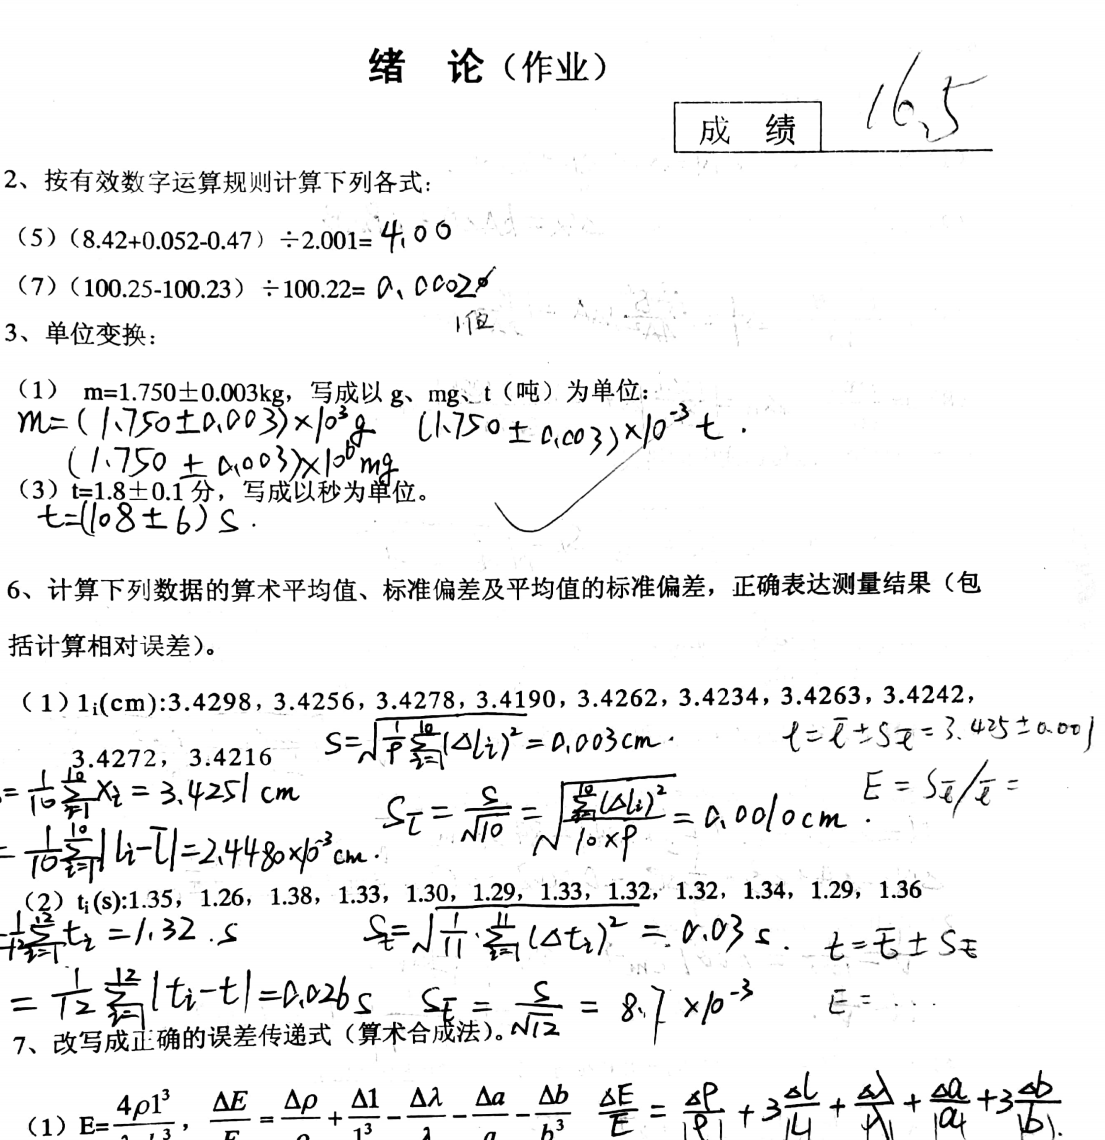 绪 论（作业）
成 绩 16.5
2、按有效数字运算规则计算下列各式：
（5）（8.42+0.052-0.47）÷2.001= 4.00
（7）（100.25-100.23）÷100.22= 0.0002
1位
3、单位变换：
（1） m=1.750±0.003kg，写成以 g、mg、t（吨）为单位：
m=(1.750±0.003)×10³g (1.750±0.003)×10⁻³ t .
(1.750±0.003)×10⁶mg
（3）t=1.8±0.1 分，写成以秒为单位。
t=(108±6) s .
6、计算下列数据的算术平均值、标准偏差及平均值的标准偏差，正确表达测量结果（包
括计算相对误差）。
（1）lᵢ(cm):3.4298，3.4256，3.4278，3.4190，3.4262，3.4234，3.4263，3.4242，
3.4272，3.4216 S=√(1/9 Σᵢ₌₁¹⁰(Δlᵢ)²) = 0.003cm . l=l̄±S_l̄=3.425±0.001
= 1/10 Σᵢ₌₁¹⁰ xᵢ = 3.4251 cm S_l̄ = S/√10 = √(Σᵢ₌₁¹⁰(Δlᵢ)²/(10×9)) = 0.0010cm . E = S_l̄/l̄ =
= 1/10 Σᵢ₌₁¹⁰|lᵢ-l̄|=2.4480×10⁻³cm .
（2）tᵢ(s):1.35，1.26，1.38，1.33，1.30，1.29，1.33，1.32，1.32，1.34，1.29，1.36
=1/12 Σᵢ₌₁¹² tᵢ =1.32 .s S_t=√(1/11 · Σᵢ₌₁¹¹(Δtᵢ)²) = 0.03 s . t=t̄±S_t̄
= 1/12 Σᵢ₌₁¹²|tᵢ-t|=0.026s S_t̄ = S/√12 = 8.7×10⁻³ E = ...
7、改写成正确的误差传递式（算术合成法）。
（1）E=4ρl³/λ ³，ΔE/E=Δρ/ρ+Δl/l³-Δλ/λ-Δa/a-Δb/b³ ΔE/E = Δρ/|ρ|+3Δl/|l|+Δλ/|λ|+Δa/|a|+3Δb/|b|.